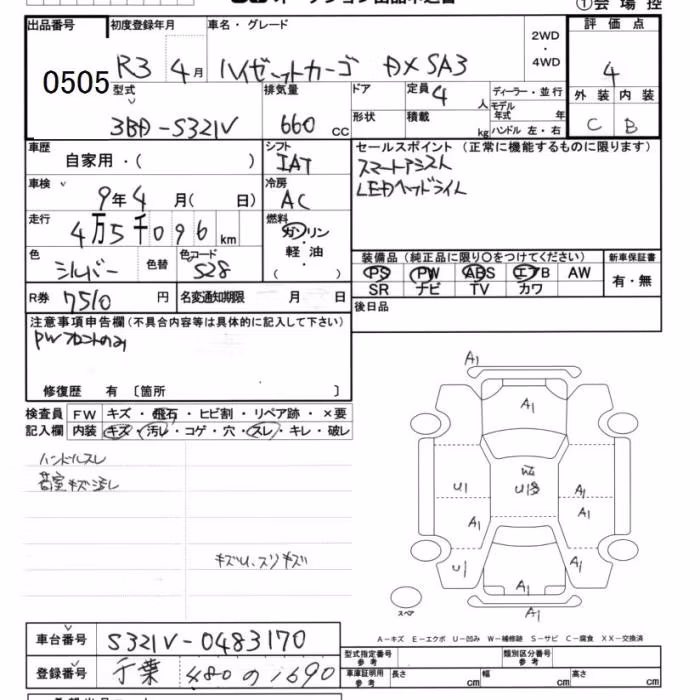 ① 会 場 控
出品番号 初度登録年月 車名・グレード 2WD ・ 4WD 評価点
0505 R3 4月 ハイゼットカーゴ DX SA3 4
型式 排気量 ドア 定員 4人 ディーラー・並行 外装 内装
3BD-S321V 660 cc 形状 積載 kg モデル年式 年 C B
ハンドル 左・右
車歴 シフト セールスポイント (正常に機能するものに限ります)
自家用・( ) IAT スマートアシスト
車検 冷房 LEDヘッドライト
9年4月( 日) AC
走行 燃料
4万5千096km ガソリン・軽油 ( )
色 色替 色コード 装備品 (純正品に限り〇をつけてください) 新車保証書
シルバー S28 PS PW ABS エアB AW 有・無
SR ナビ TV カワ
R券 7510 円 名変通知期限 月 日 後日品
注意事項申告欄(不具合内容等は具体的に記入して下さい)
PWフロントのみ
修復歴 有 〔箇所 〕
検査員 FW キズ・飛石・ヒビ割・リペア跡・×要
記入欄 内装 キズ・汚レ・コゲ・穴・スレ・キレ・破レ
ハンドルスレ
荷室キズ汚レ
キズU、スリキズ
A1
A1
U1 A1
A1 A1
U1 A1
A1
A1
スペア
A-キズ E-エクボ U-凹み W-補修跡 S-サビ C-腐食 XX-交換済
車台番号 S321V-0483170
型式指定番号 参考 類別区分番号 参考
登録番号 千葉 480 の 1690
車庫証明用 参考 長さ cm 幅 cm 高さ cm